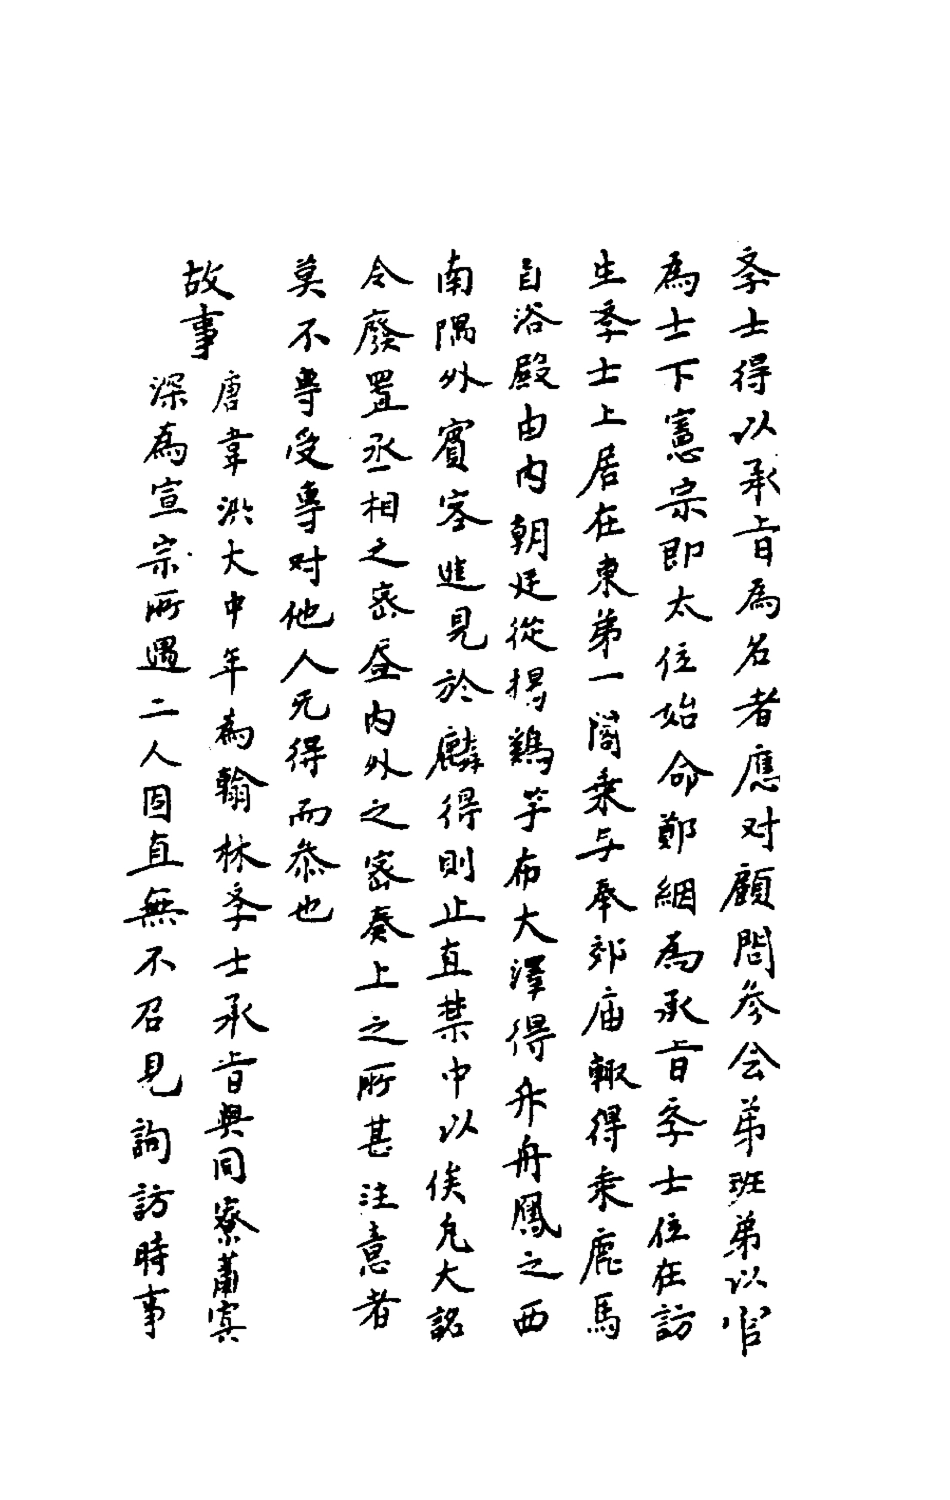 孝士得以承旨為名者應对顧問参会弟班弟以官
為士下憲宗即太位始命鄭絪為承旨孝士位在訪
生孝士上居在東第一閤乗与奉郊庙輙得乗鹿馬
自浴殿由内朝廷從揚鷄竿布大澤得舟鳳之西
南隅外賓客進見於麟得則止直禁中以俟允大詺
令廢置丞相之密昼内外之密奏上之所甚注意者
莫不專受專对他人无得而叅也
故事
唐韋大中年為翰林孝士承旨與同寮蕭寘
深為宣宗所遇二人固直無不召見詢訪時事